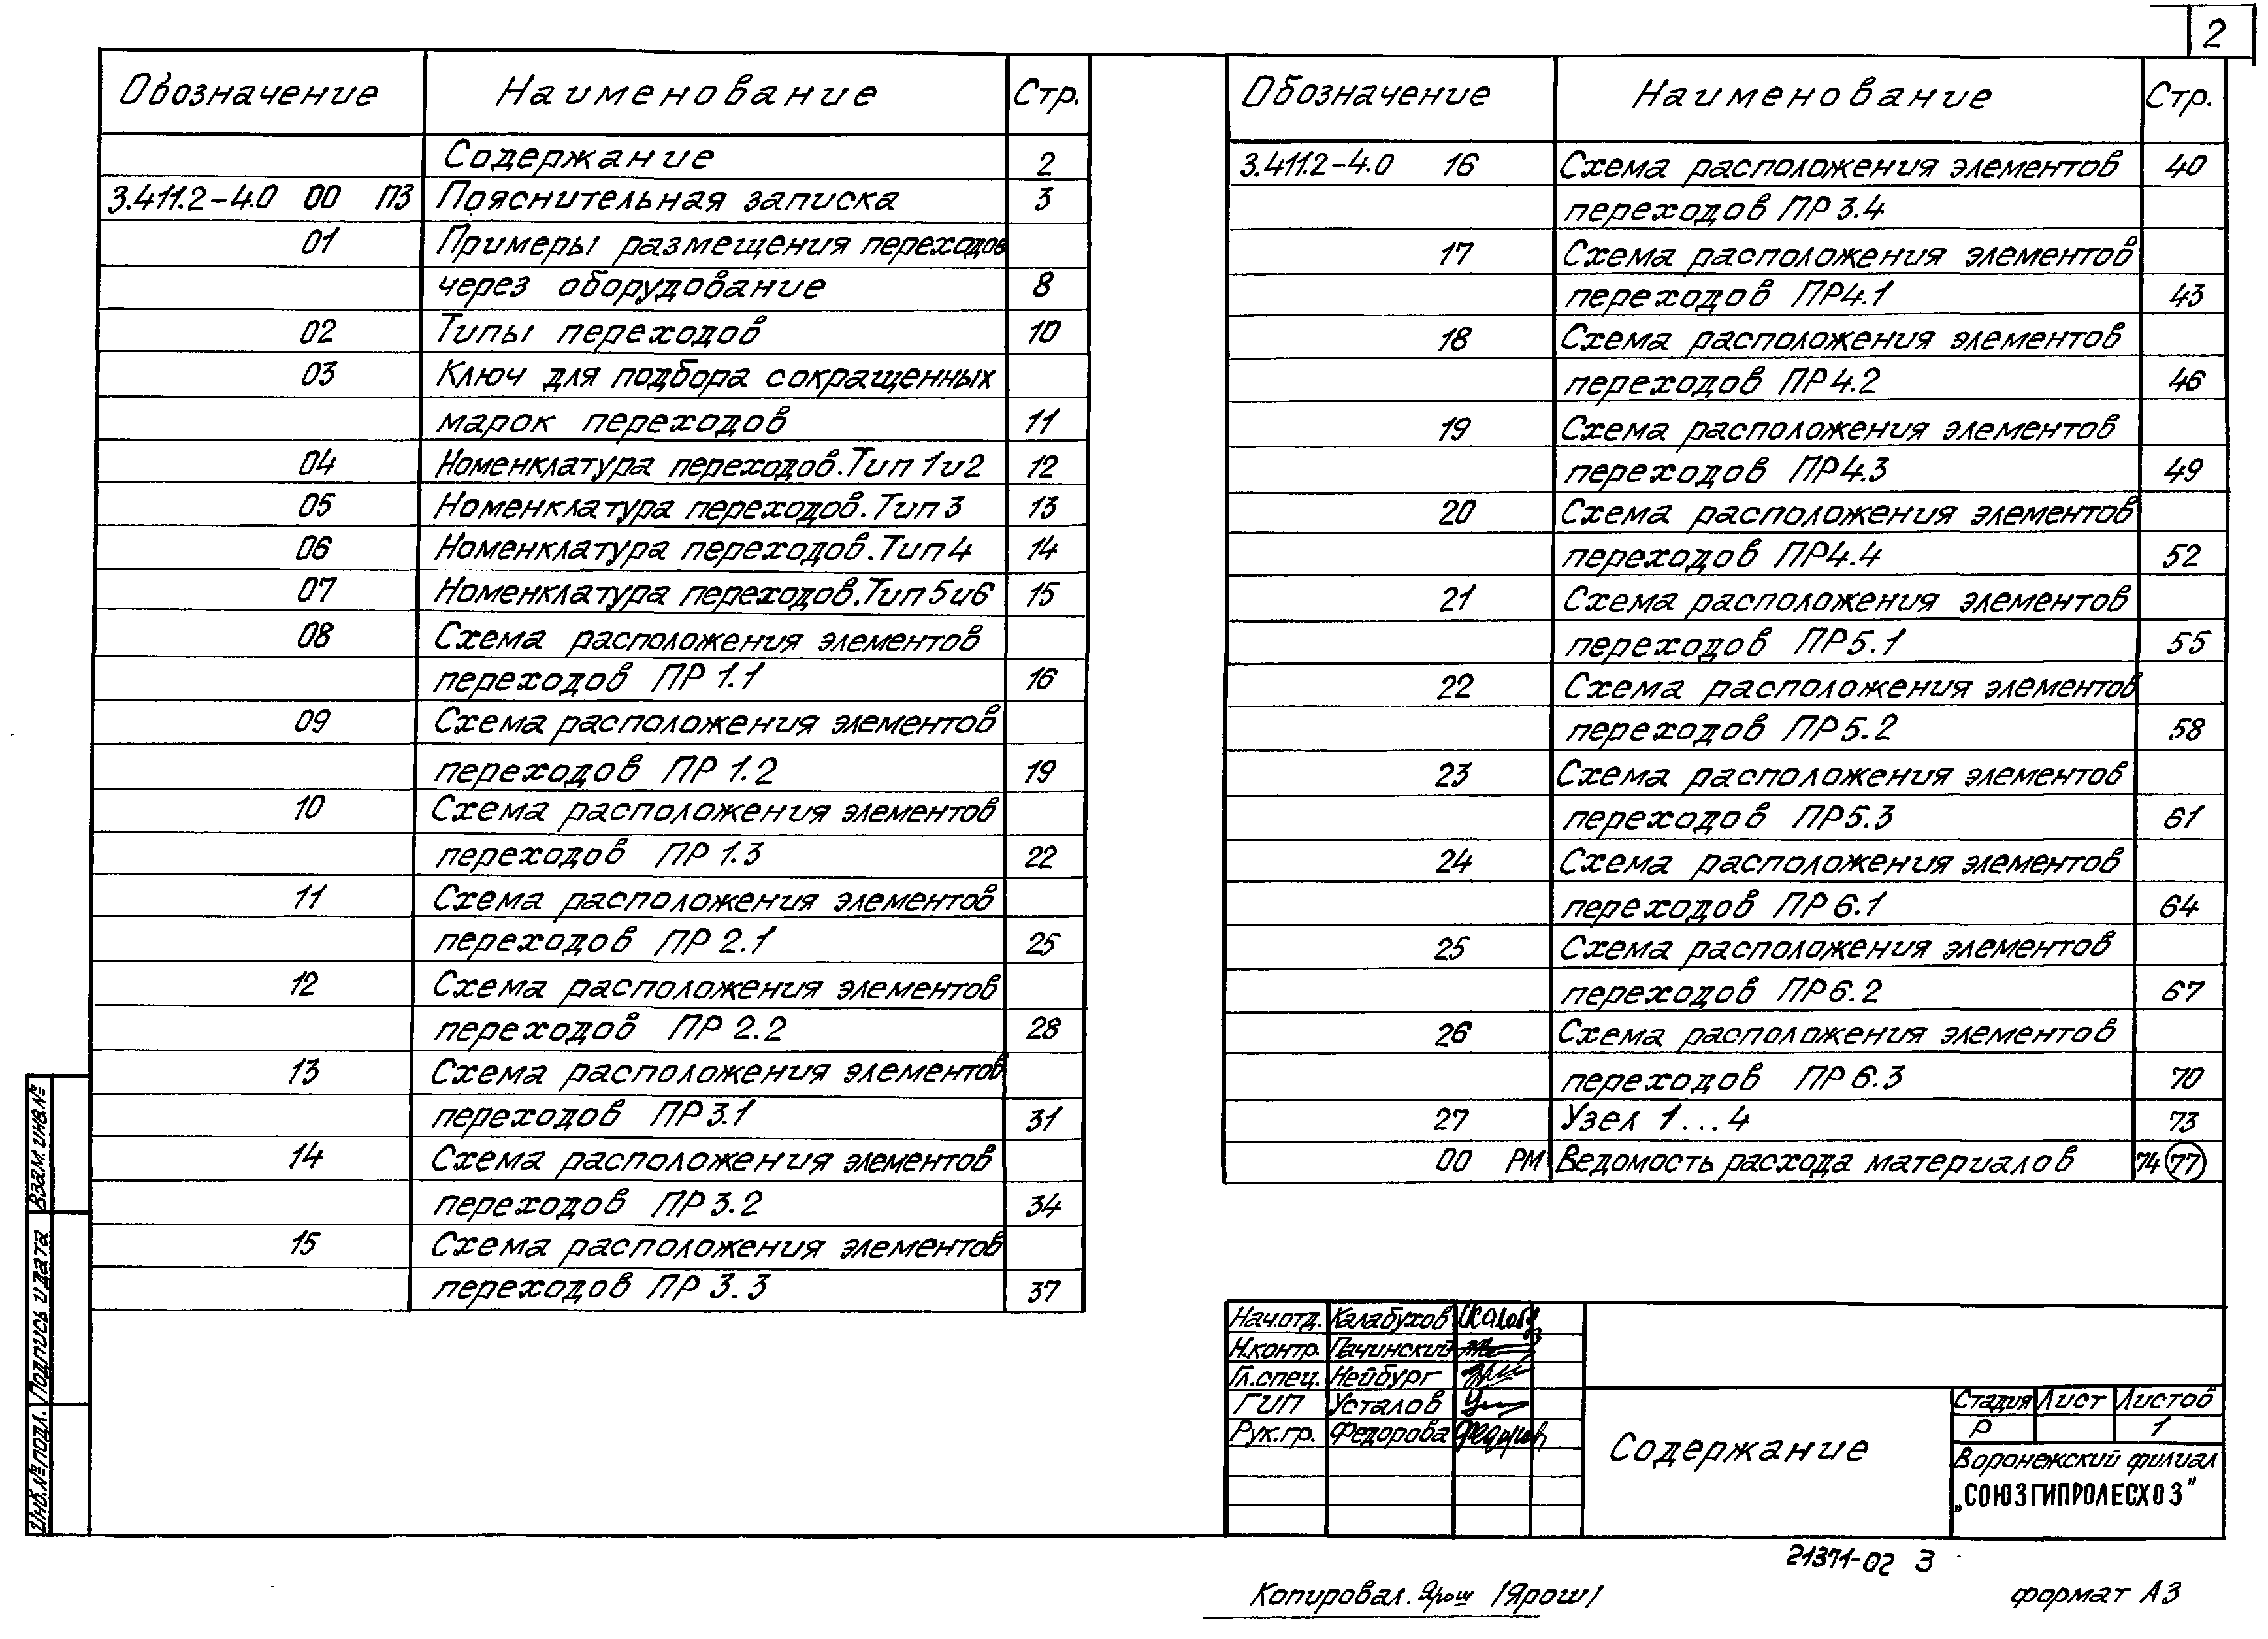 2
Обозначение Наименование Стр.
Содержание 2
3.411.2-4.0 00 ПЗ Пояснительная записка 3
01 Примеры размещения переходов
через оборудование 8
02 Типы переходов 10
03 Ключ для подбора сокращенных
марок переходов 11
04 Номенклатура переходов. Тип 1и2 12
05 Номенклатура переходов. Тип 3 13
06 Номенклатура переходов. Тип 4 14
07 Номенклатура переходов. Тип 5и6 15
08 Схема расположения элементов
переходов ПР 1.1 16
09 Схема расположения элементов
переходов ПР 1.2 19
10 Схема расположения элементов
переходов ПР 1.3 22
11 Схема расположения элементов
переходов ПР 2.1 25
12 Схема расположения элементов
переходов ПР 2.2 28
13 Схема расположения элементов
переходов ПР 3.1 31
14 Схема расположения элементов
переходов ПР 3.2 34
15 Схема расположения элементов
переходов ПР 3.3 37
Обозначение Наименование Стр.
3.411.2-4.0 16 Схема расположения элементов 40
переходов ПР 3.4
17 Схема расположения элементов
переходов ПР4.1 43
18 Схема расположения элементов
переходов ПР4.2 46
19 Схема расположения элементов
переходов ПР4.3 49
20 Схема расположения элементов
переходов ПР4.4 52
21 Схема расположения элементов
переходов ПР5.1 55
22 Схема расположения элементов
переходов ПР5.2 58
23 Схема расположения элементов
переходов ПР5.3 61
24 Схема расположения элементов
переходов ПР6.1 64
25 Схема расположения элементов
переходов ПР6.2 67
26 Схема расположения элементов
переходов ПР6.3 70
27 Узел 1...4 73
00 РМ Ведомость расхода материалов 74 77
Взам. инв.№
Подпись и дата
Инв.№ подл.
Нач.отд. Калабухов
Н.контр. Пачинский
Гл.спец. Нейбург
ГИП Усталов
Рук.гр. Федорова
Содержание
Стадия Лист Листов
Р 1
Воронежский филиал
„СОЮЗГИПРОЛЕСХОЗ"
21371-02 3
Копировал. Ярош /Ярош/
формат А3